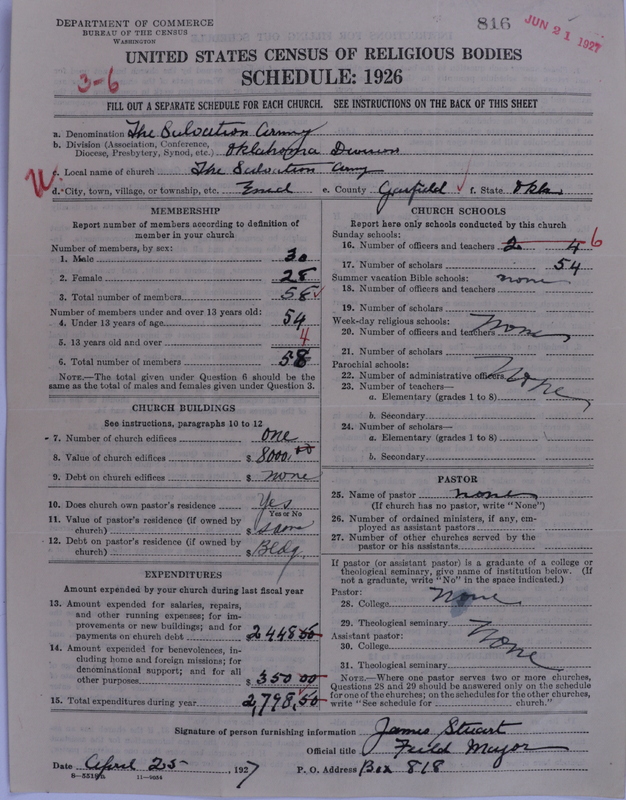 DEPARTMENT OF COMMERCE
BUREAU OF THE CENSUS
WASHINGTON
816
JUN 21 1927
UNITED STATES CENSUS OF RELIGIOUS BODIES
3-6
SCHEDULE: 1926
FILL OUT A SEPARATE SCHEDULE FOR EACH CHURCH. SEE INSTRUCTIONS ON THE BACK OF THIS SHEET
a. Denomination The Salvation Army
b. Division (Association, Conference,
Diocese, Presbytery, Synod, etc.) Oklahoma Division
c. Local name of church The Salvation Army
d. City, town, village, or township, etc. Enid e. County Garfield f. State Okla
MEMBERSHIP
Report number of members according to definition of
member in your church
Number of members, by sex:
1. Male 30
2. Female 28
3. Total number of members 58
Number of members under and over 13 years old:
4. Under 13 years of age 54
5. 13 years old and over 4
6. Total number of members 58
NOTE.—The total given under Question 6 should be the
same as the total of males and females given under Question 3.
CHURCH BUILDINGS
See instructions, paragraphs 10 to 12
7. Number of church edifices one
8. Value of church edifices $ 8000.00
9. Debt on church edifices $ none
10. Does church own pastor's residence Yes
Yes or No
11. Value of pastor's residence (if owned by
church) $ same
12. Debt on pastor's residence (if owned by
church) $ Bldg.
EXPENDITURES
Amount expended by your church during last fiscal year
13. Amount expended for salaries, repairs,
and other running expenses; for im-
provements or new buildings; and for
payments on church debt $ 2448 50
14. Amount expended for benevolences, in-
cluding home and foreign missions; for
denominational support; and for all
other purposes $ 350 00
15. Total expenditures during year 2,798,50
CHURCH SCHOOLS
Report here only schools conducted by this church
Sunday schools:
16. Number of officers and teachers 2 4 6
17. Number of scholars 54
Summer vacation Bible schools: none
18. Number of officers and teachers
19. Number of scholars
Week-day religious schools:
20. Number of officers and teachers None
21. Number of scholars
Parochial schools:
22. Number of administrative officers None
23. Number of teachers—
a. Elementary (grades 1 to 8)
b. Secondary
24. Number of scholars—
a. Elementary (grades 1 to 8)
b. Secondary
PASTOR
25. Name of pastor none
(If church has no pastor, write "None")
26. Number of ordained ministers, if any, em-
ployed as assistant pastors
27. Number of other churches served by the
pastor or his assistants
If pastor (or assistant pastor) is a graduate of a college or
theological seminary, give name of institution below. (If
not a graduate, write "No" in the space indicated.)
Pastor:
28. College None
29. Theological seminary
Assistant pastor:
30. College None
31. Theological seminary
NOTE.—Where one pastor serves two or more churches,
Questions 28 and 29 should be answered only on the schedule
for one of the churches; on the schedules for the other churches,
write "See schedule for church."
Signature of person furnishing information James Stewart
Official title Field Major
Date April 25, 1927 P. O. Address Box 818
11—9034